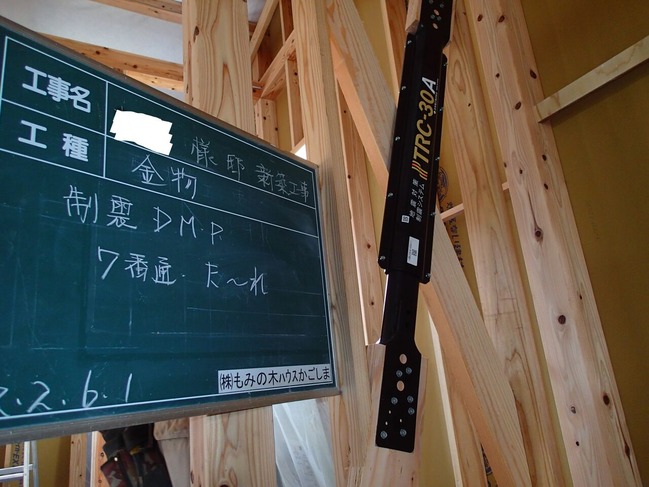 工事名
様邸 新築工事
工種
金物
制震 D.M.P.
7番通. た~れ
2.2.6.1
(株)もみの木ハウスかごしま
TRC-30A
制震システム